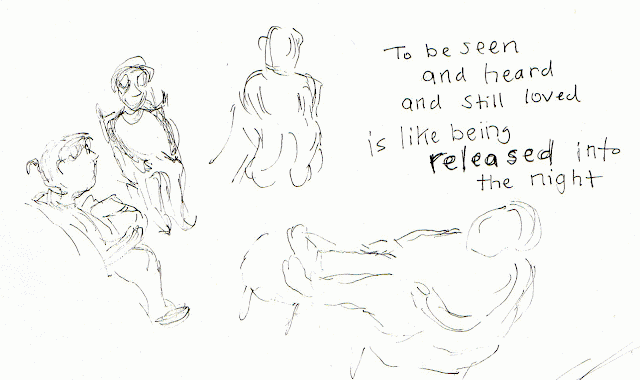 To be seen
and heard
and still loved
is like being
released into
the night